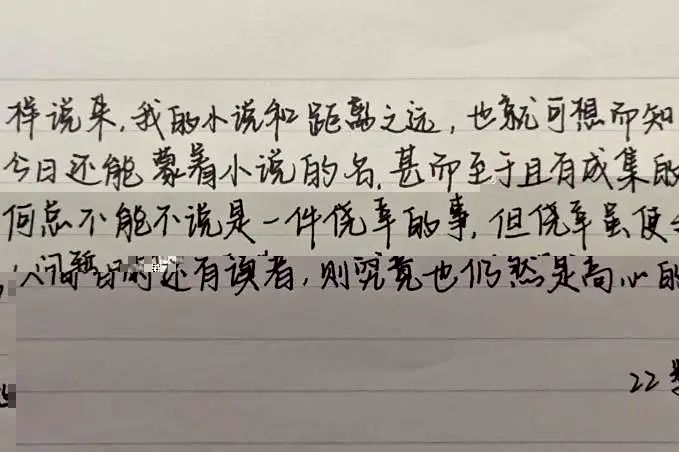 样说来,我的小说和距离之远,也就可想而知
今日还能蒙着小说的名,甚而至于且有成集的
何总不能不说是一件侥幸的事,但侥幸虽使
人间暂时还有读者,则究竟也仍然是高心的
22